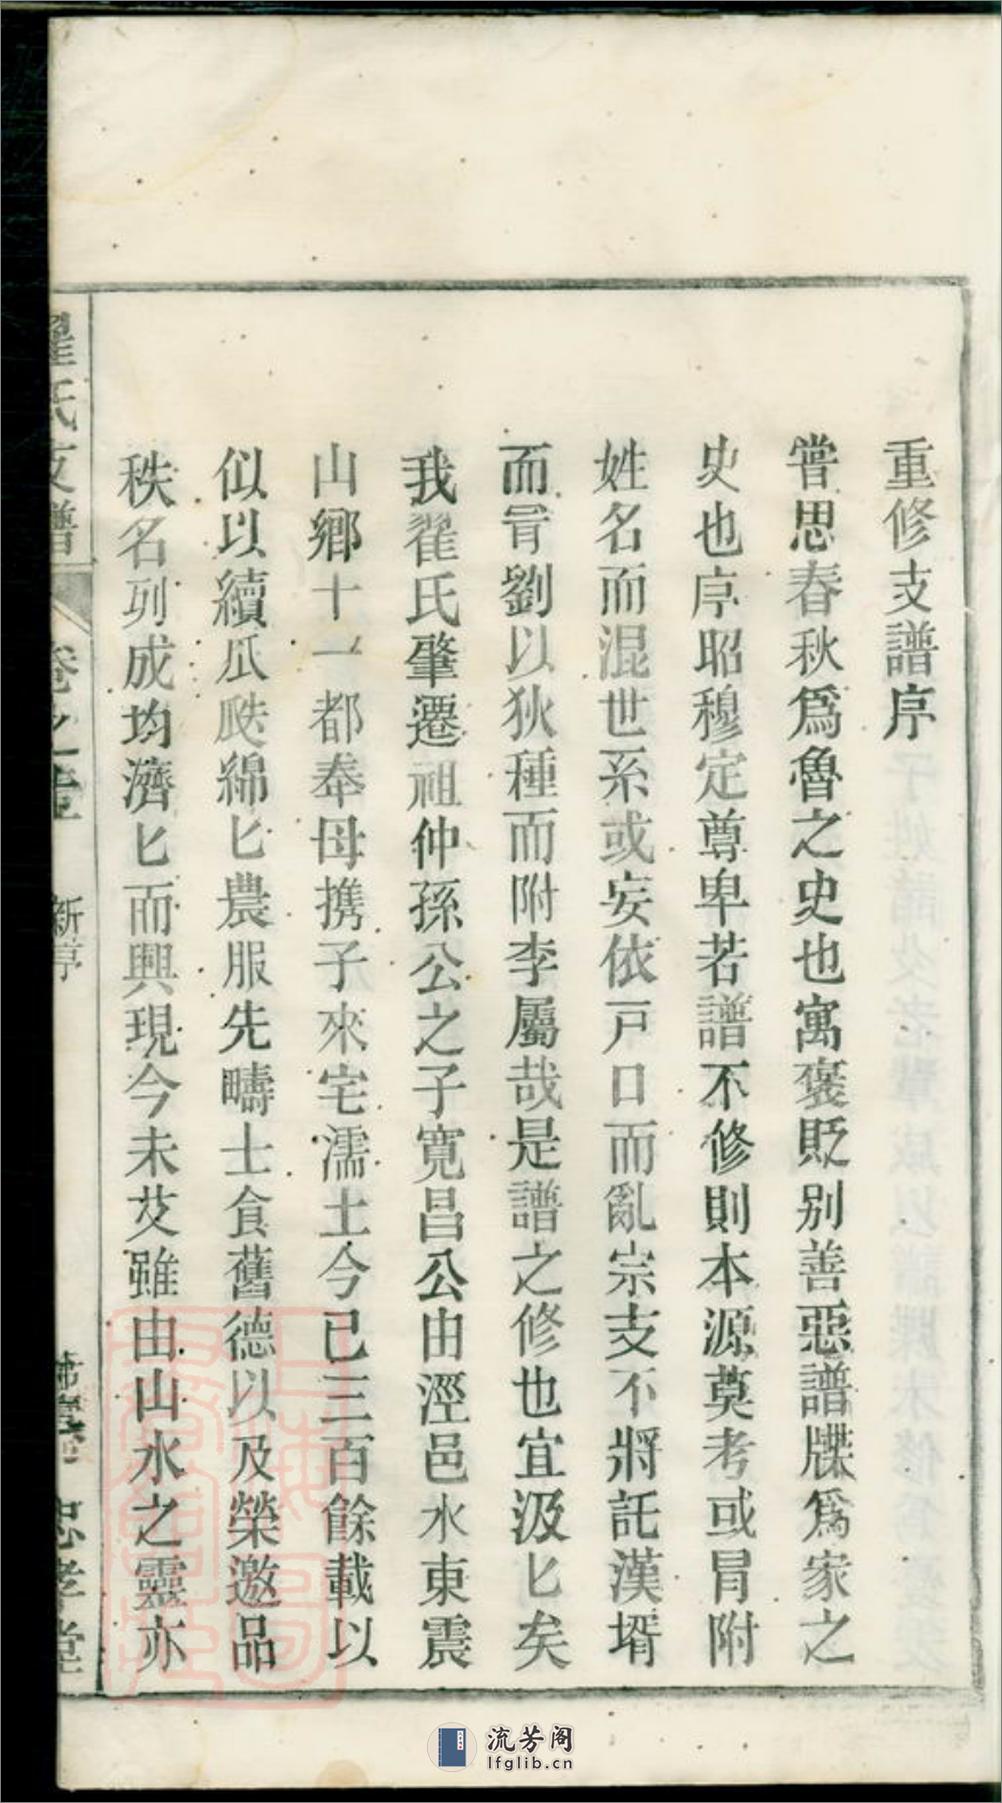 重修支譜序
嘗思春秋爲魯之史也寓褒貶别善惡譜牒爲家之
史也序昭穆定尊卑若譜不修則本源莫考或冐附
姓名而混世系或妄依戸口而亂宗支不將託漢壻
而冐劉以狄種而附李屬哉是譜之修也宜汲匕矣
我翟氏肇遷祖仲孫公之子寛昌公由涇邑水東震
山鄉十一都奉母携子來宅濡土今已三百餘載以
似以續瓜瓞綿匕農服先疇士食舊德以及榮邀品
秩名列成均濟匕而興現今未艾雖由山水之靈亦
翟氏支譜
卷之壹
新序
忠孝堂
流芳阁
lfglib.cn